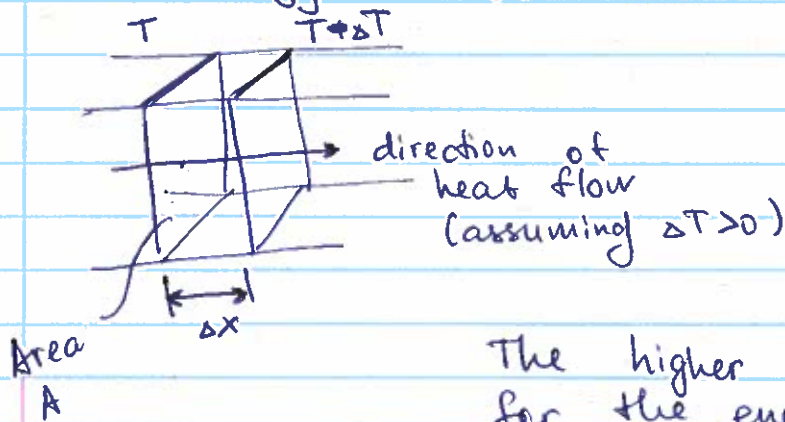 T T+ΔT
direction of
heat flow
(assuming ΔT>0)
Δx
Area
A
The higher
for the